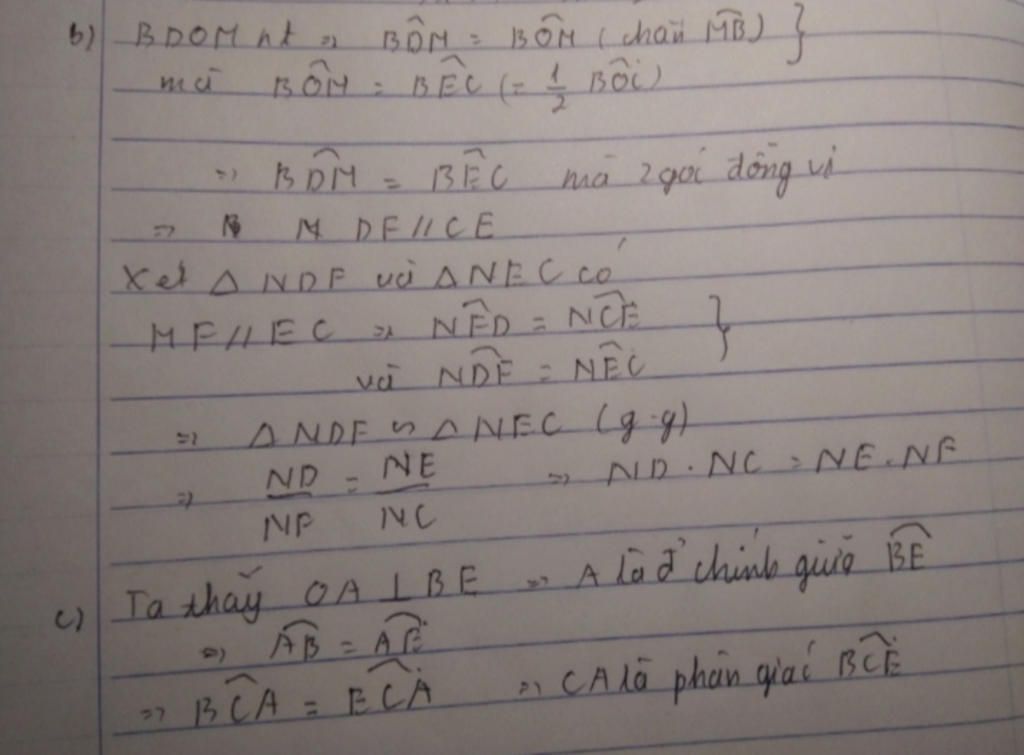 b) BDOM nt => BD̂M = BÔM (chắn M͡B) }
mà BÔM = BÊC (= 1/2 BÔC)
=> BD̂M = BÊC mà 2 góc đồng vị
=> M DF // CE
Xét △ NDF và △ NEC có
MF // EC => NF̂D = NĈE }
và ND̂F = NÊC
=> △ NDF ∽ △ NEC (g.g)
=> ND/NF = NE/NC => ND . NC = NE . NF
c) Ta thấy OA ⊥ BE => A là đ' chính giữa B͡E
=> A͡B = A͡E
=> BĈA = EĈA => CA là phân giác BĈE